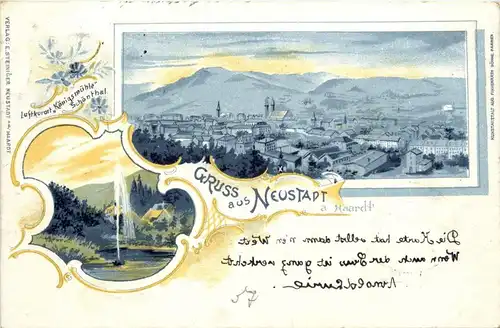 VERLAG: E. STEINIGER NEUSTADT HAARDT.
Luftkurort „Königsmühle"
Schönthal.
GRUSS
aus NEUSTADT
a Haardt
Die Karte hat selbst dann n'en Wert
Wenn auch der Gruss ist ganz verkehrt